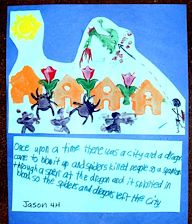 Once upon a time there was a city and a dragon
came to blow it up and spiders killed people so a spartan
through a spear at the dragon and it splashed in
blood so the spiders and dragon left the City
Jason 4H